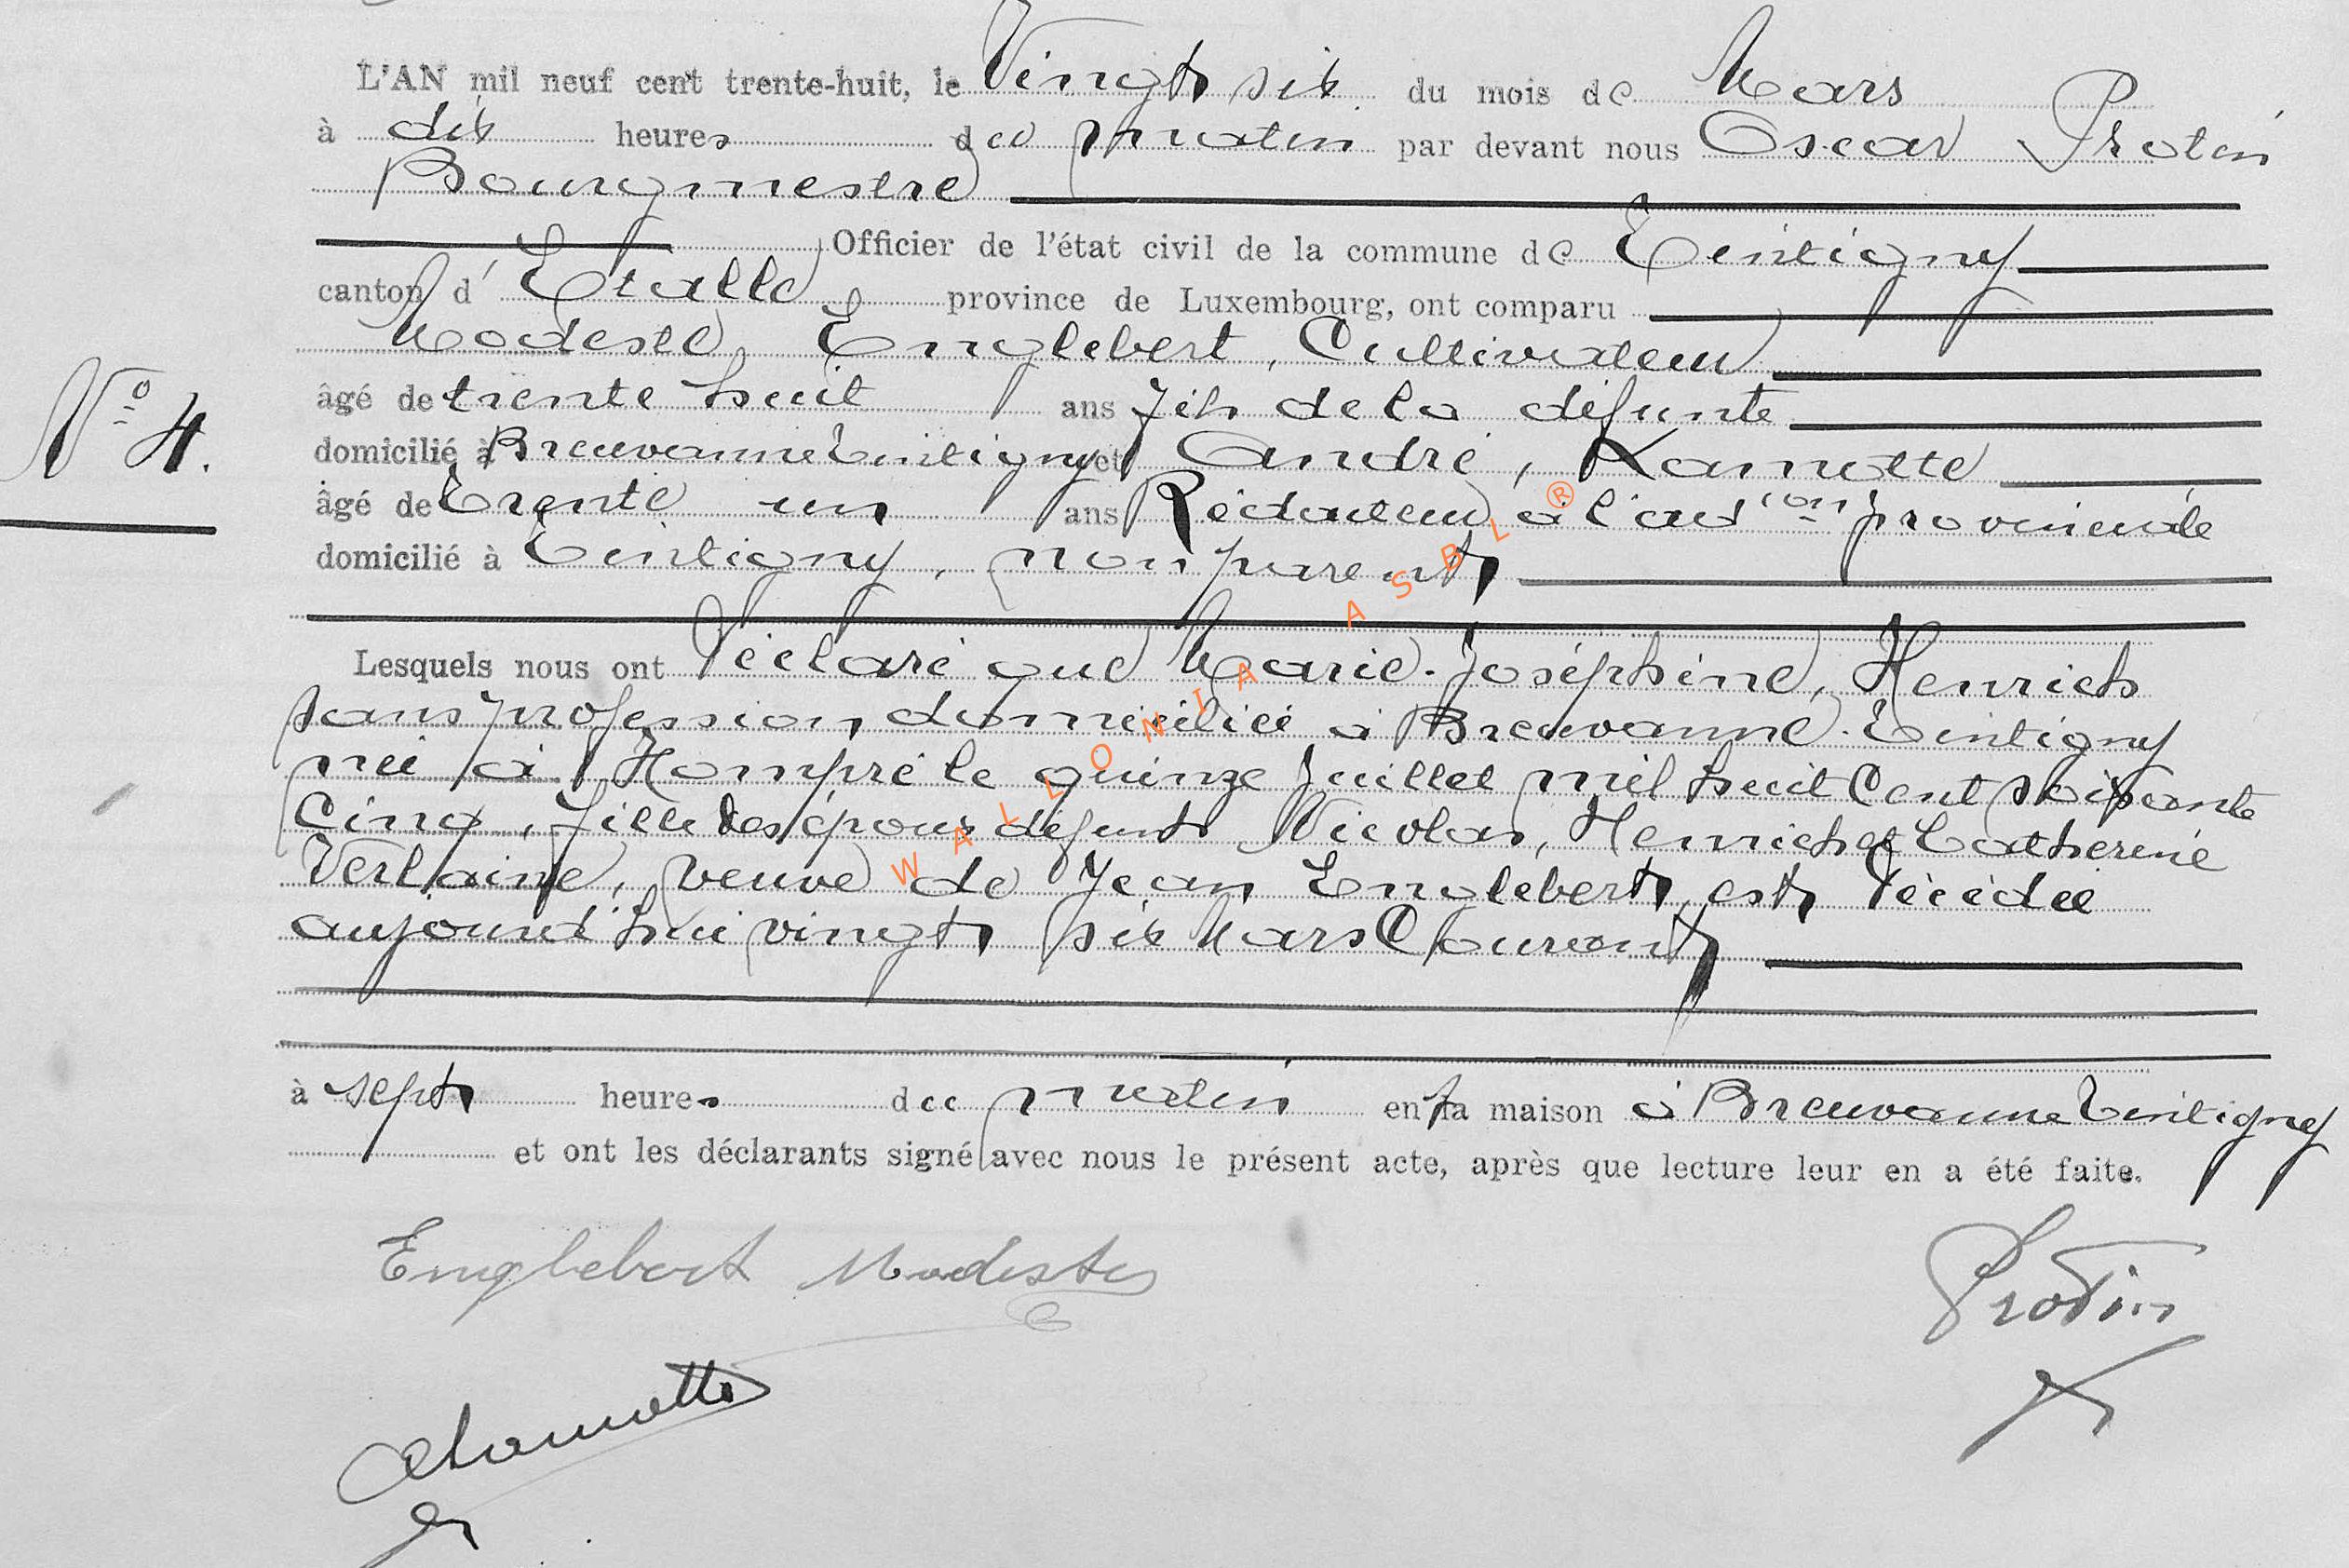 L'AN mil neuf cent trente-huit, le Vingt six du mois de Mars
à dix heures du matin par devant nous Oscar Protin
Bourgmestre
Officier de l'état civil de la commune de Tintigny
canton d' Etalle province de Luxembourg, ont comparu
Modeste, Englebert, Cultivateur
N° 4.
âgé de trente huit ans fils de la défunte
domicilié à Breuvanne Tintigny et André, Lamotte
âgé de Trente un ans Rédacteur à l'adon provinciale
domicilié à Tintigny, non parent
Lesquels nous ont Déclaré que Marie-Joséphine, Henrich
sans profession, domiciliée à Breuvanne-Tintigny
née à Hompré le quinze Juillet mil huit Cent soixante
Cinq, fille des époux défunts Nicolas, Henrich et Catherine
Verlaine, veuve de Jean Englebert, est Décédée
aujourd'hui vingt six Mars Courant
à sept heures du matin en sa maison à Breuvanne Tintigny
et ont les déclarants signé avec nous le présent acte, après que lecture leur en a été faite.
Englebert Modeste
Protin
ALamotte
WALLONIA ASBL ®